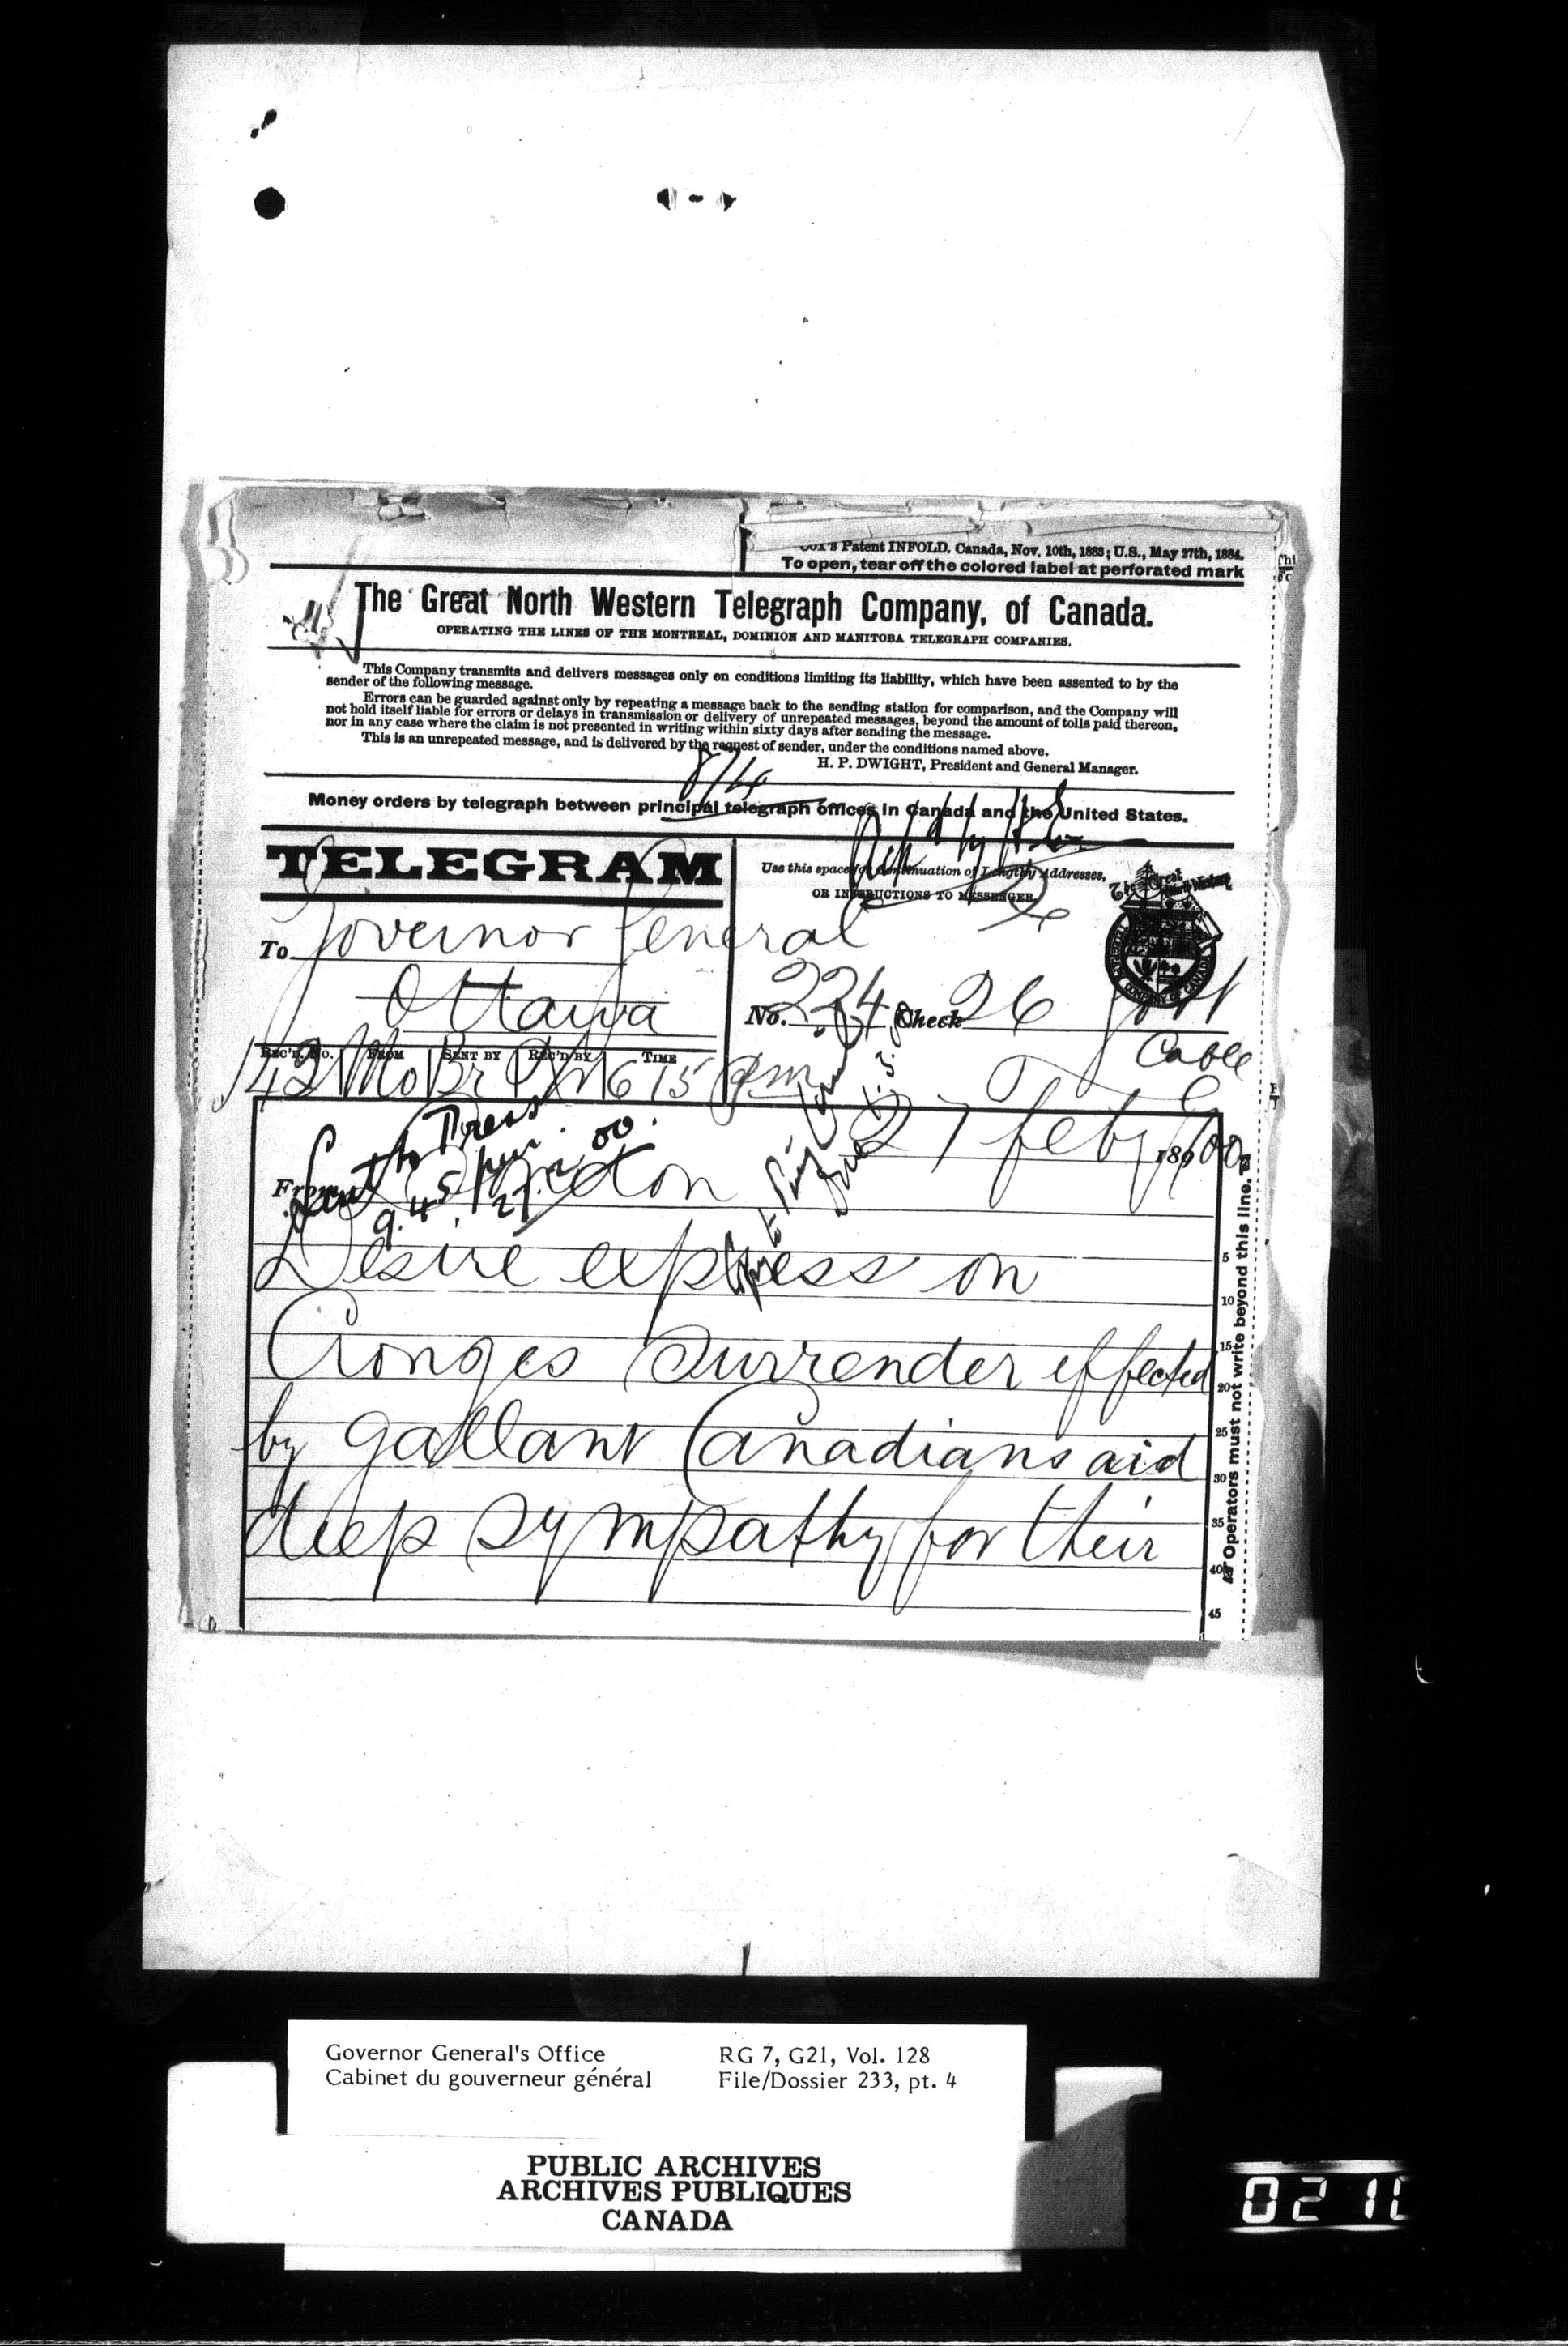 Patent INFOLD. Canada, Nov. 10th, 1883; U.S., May 27th, 1884.
To open, tear off the colored label at perforated mark
The Great North Western Telegraph Company, of Canada.
OPERATING THE LINES OF THE MONTREAL, DOMINION AND MANITOBA TELEGRAPH COMPANIES.
This Company transmits and delivers messages only on conditions limiting its liability, which have been assented to by the
sender of the following message.
Errors can be guarded against only by repeating a message back to the sending station for comparison, and the Company will
not hold itself liable for errors or delays in transmission or delivery of unrepeated messages, beyond the amount of tolls paid thereon,
nor in any case where the claim is not presented in writing within sixty days after sending the message.
This is an unrepeated message, and is delivered by the request of sender, under the conditions named above.
H. P. DWIGHT, President and General Manager.
874
Money orders by telegraph between principal telegraph offices in Canada and the United States.
TELEGRAM
Use this space for Continuation of Lengthy Addresses,
OR INSTRUCTIONS TO MESSENGER.
To Governor General
Ottawa
No. 224 Check 26
Cable
REC'D. NO. FROM SENT BY REC'D BY TIME
142 Mo Br 615 pm
27 Feby 1900
Sent to Press
9.45
From London
Desire express on
Cronges surrender effected
by gallant Canadians aid
deep sympathy for their
5
10
15
20
25
30
35
40
45
Operators must not write beyond this line.
Governor General's Office RG 7, G21, Vol. 128
Cabinet du gouverneur général File/Dossier 233, pt. 4
PUBLIC ARCHIVES
ARCHIVES PUBLIQUES
CANADA